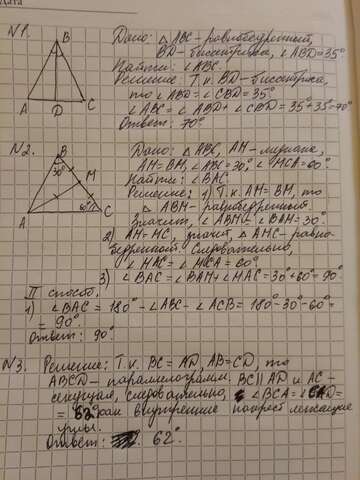 Дата
№1.
B
A D C
Дано: △ABC - равнобедренный,
BD - биссектриса, ∠ABD = 35°
Найти: ∠ABC.
Решение: Т.к. BD - биссектриса,
то ∠ABD = ∠CBD = 35°
∠ABC = ∠ABD + ∠CBD = 35° + 35° = 70°
Ответ: 70°.
№2.
B
30°
M
60°
A C
Дано: △ABC, AM - медиана,
AM = BM, ∠ABC = 30°, ∠MCA = 60°.
Найти: ∠BAC
Решение: 1) Т.к. AM = BM, то
△ABM - равнобедренный.
Значит, ∠ABM = ∠BAM = 30°
2) AM = MC, значит, △AMC - равно-
бедренный. Следовательно,
∠MAC = ∠MCA = 60°.
3) ∠BAC = ∠BAM + ∠MAC = 30° + 60° = 90°
II способ.
1) ∠BAC = 180° - ∠ABC - ∠ACB = 180° - 30° - 60° =
= 90°.
Ответ: 90°
№3. Решение: Т.к. BC = AD, AB = CD, то
ABCD - параллелограмм. BC || AD и AC -
секущая, следовательно, ∠BCA = ∠CAD =
= 62° как внутренние накрест лежащие
углы.
Ответ: 62°.